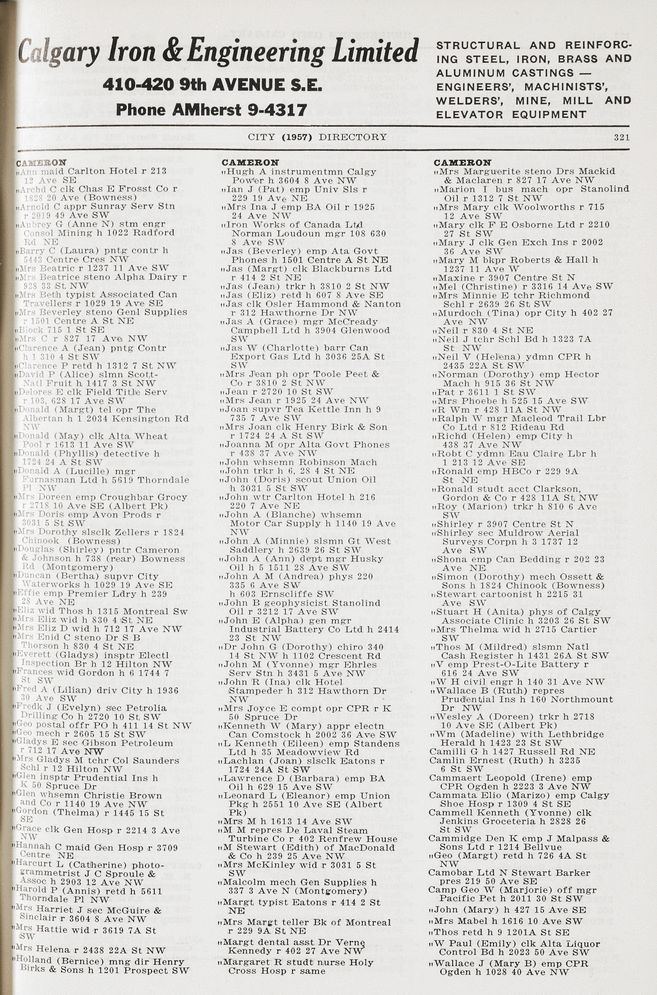 Calgary Iron & Engineering Limited
410-420 9th AVENUE S.E.
Phone AMherst 9-4317
STRUCTURAL AND REINFORC-
ING STEEL, IRON, BRASS AND
ALUMINUM CASTINGS —
ENGINEERS', MACHINISTS',
WELDERS', MINE, MILL AND
ELEVATOR EQUIPMENT
CITY (1957) DIRECTORY
321
CAMERON
"Ann maid Carlton Hotel r 213
12 Ave SE
"Archd C clk Chas E Frosst Co r
1828 20 Ave (Bowness)
"Arnold C appr Sunray Serv Stn
r 2019 49 Ave SW
"Aubrey G (Anne N) stm engr
Consol Mining h 1022 Radford
Rd NE
"Barry C (Laura) pntg contr h
5443 Centre Cres NW
"Mrs Beatric r 1237 11 Ave SW
"Mrs Beatrice steno Alpha Dairy r
928 33 St NW
"Mrs Beth typist Associated Can
Travellers r 1029 19 Ave SE
"Mrs Beverley steno Genl Supplies
r 1501 Centre A St NE
"Block 715 1 St SE
"Mrs C r 827 17 Ave NW
"Clarence A (Jean) pntg Contr
h 1 310 4 St SW
"Clarence P retd h 1312 7 St NW
"David P (Alice) slmn Scott-
Natl Fruit h 1417 3 St NW
"Delores E clk Field Title Serv
r 103, 628 17 Ave SW
"Donald (Margt) tel opr The
Albertan h 1 2034 Kensington Rd
NW
"Donald (May) clk Alta Wheat
Pool r 1613 11 Ave SW
"Donald (Phyllis) detective h
1724 24 A St SW
"Donald A (Lucille) mgr
Furnasman Ltd h 5619 Thorndale
Pl NW
"Mrs Doreen emp Croughbar Grocy
r 2718 10 Ave SE (Albert Pk)
"Mrs Doris emp Avon Prods r
3031 5 St SW
"Mrs Dorothy slsclk Zellers r 1824
Chinook (Bowness)
"Douglas (Shirley) pntr Cameron
& Johnson h 738 (rear) Bowness
Rd (Montgomery)
"Duncan (Bertha) supvr City
Waterworks h 1029 19 Ave SE
"Effie emp Premier Ldry h 239
25 Ave NE
"Eliz wid Thos h 1315 Montreal Sw
"Mrs Eliz wid h 830 4 St NE
"Mrs Eliz D wid h 712 17 Ave NW
"Mrs Enid C steno Dr S B
Thorson h 830 4 St NE
"Everett (Gladys) insptr Electl
Inspection Br h 12 Hilton NW
"Frances wid Gordon h 6 1744 7
St SW
"Fred A (Lilian) driv City h 1936
30 Ave SW
"Fredk J (Evelyn) sec Petrolia
Drilling Co h 2720 10 St SW
"Geo postal offr PO h 411 14 St NW
"Geo mech r 2605 15 St SW
"Gladys E sec Gibson Petroleum
r 712 17 Ave NW
"Mrs Gladys M tchr Col Saunders
Schl r 12 Hilton NW
"Glen insptr Prudential Ins h
K 50 Spruce Dr
"Glen whsemn Christie Brown
and Co r 1140 19 Ave NW
"Gordon (Thelma) r 1445 15 St
SE
"Grace clk Gen Hosp r 2214 3 Ave
NW
"Hannah C maid Gen Hosp r 3709
Centre NE
"Harcurt L (Catherine) photo-
grammetrist J C Sproule &
Assoc h 2903 12 Ave NW
"Harold P (Annis) retd h 5611
Thorndale Pl NW
"Mrs Harriet J sec McGuire &
Sinclair r 3604 8 Ave NW
"Mrs Hattie wid r 3619 7A St
SW
"Mrs Helena r 2438 22A St NW
"Holland (Bernice) mng dir Henry
Birks & Sons h 1201 Prospect SW
CAMERON
"Hugh A instrumentmn Calgy
Power h 3604 8 Ave NW
"Ian J (Pat) emp Univ Sls r
229 19 Ave NE
"Mrs Ina J emp BA Oil r 1925
24 Ave NW
"Iron Works of Canada Ltd
Norman Loudoun mgr 108 630
8 Ave SW
"Jas (Beverley) emp Ata Govt
Phones h 1501 Centre A St NE
"Jas (Margt) clk Blackburns Ltd
r 414 2 St NE
"Jas (Jean) trkr h 3810 2 St NW
"Jas (Eliz) retd h 607 8 Ave SE
"Jas clk Osler Hammond & Nanton
r 312 Hawthorne Dr NW
"Jas A (Grace) mgr McCready
Campbell Ltd h 3904 Glenwood
SW
"Jas W (Charlotte) barr Can
Export Gas Ltd h 3036 25A St
SW
"Mrs Jean ph opr Toole Peet &
Co r 3810 2 St NW
"Jean r 2720 10 St SW
"Mrs Jean r 1925 24 Ave NW
"Joan supvr Tea Kettle Inn h 9
735 7 Ave SW
"Mrs Joan clk Henry Birk & Son
r 1724 24 A St SW
"Joanna M opr Alta Govt Phones
r 438 37 Ave NW
"John whsemn Robinson Mach
"John trkr h 6, 28 4 St NE
"John (Doris) scout Union Oil
h 3031 5 St SW
"John wtr Carlton Hotel h 216
220 7 Ave NE
"John A (Blanche) whsemn
Motor Car Supply h 1140 19 Ave
NW
"John A (Minnie) slsmn Gt West
Saddlery h 2639 26 St SW
"John A (Ann) dept mgr Husky
Oil h 5 1511 28 Ave SW
"John A M (Andrea) phys 220
335 6 Ave SW
h 603 Ernscliffe SW
"John B geophysicist Stanolind
Oil r 3212 17 Ave SW
"John E (Alpha) gen mgr
Industrial Battery Co Ltd h 2414
23 St NW
"Dr John G (Dorothy) chiro 340
14 St NW h 1102 Crescent Rd
"John M (Yvonne) mgr Ehrles
Serv Stn h 3431 5 Ave NW
"John R (Ina) clk Hotel
Stampeder h 312 Hawthorn Dr
NW
"Mrs Joyce E compt opr CPR r K
50 Spruce Dr
"Kenneth W (Mary) appr electn
Can Comstock h 2002 36 Ave SW
"L Kenneth (Eileen) emp Standens
Ltd h 35 Meadowview Rd
"Lachlan (Joan) slsclk Eatons r
1724 24A St SW
"Lawrence D (Barbara) emp BA
Oil h 629 15 Ave SW
"Leonard L (Eleanor) emp Union
Pkg h 2551 10 Ave SE (Albert
Pk)
"Mrs M h 1613 14 Ave SW
"M M repres De Laval Steam
Turbine Co r 402 Renfrew House
"M Stewart (Edith) of MacDonald
& Co h 239 25 Ave NW
"Mrs McKinley wid r 3031 5 St
SW
"Malcolm mech Gen Supplies h
337 3 Ave N (Montgomery)
"Margt typist Eatons r 414 2 St
NE
"Mrs Margt teller Bk of Montreal
r 229 9A St NE
"Margt dental asst Dr Verne
Kennedy r 402 27 Ave NW
"Margaret R studt nurse Holy
Cross Hosp r same
CAMERON
"Mrs Marguerite steno Drs Mackid
& Maclaren r 827 17 Ave NW
"Marion I bus mach opr Stanolind
Oil r 1312 7 St NW
"Mrs Mary clk Woolworths r 715
12 Ave SW
"Mary clk F E Osborne Ltd r 2210
27 St SW
"Mary J clk Gen Exch Ins r 2002
36 Ave SW
"Mary M bkpr Roberts & Hall h
1237 11 Ave W
"Maxine r 3907 Centre St N
"Mel (Christine) r 3316 14 Ave SW
"Mrs Minnie E tchr Richmond
Schl r 2639 26 St SW
"Murdoch (Tina) opr City h 402 27
Ave NW
"Neil r 830 4 St NE
"Neil J tchr Schl Bd h 1323 7A
St NW
"Neil V (Helena) ydmn CPR h
2435 22A St SW
"Norman (Dorothy) emp Hector
Mach h 915 36 St NW
"Pat r 3611 1 St SW
"Mrs Phoebe h 525 15 Ave SW
"R Wm r 428 11A St NW
"Ralph W mgr Macleod Trail Lbr
Co Ltd r 812 Rideau Rd
"Richd (Helen) emp City h
438 37 Ave NW
"Robt C ydmn Eau Claire Lbr h
1 213 12 Ave SE
"Ronald emp HBCo r 229 9A
St NE
"Ronald studt acct Clarkson,
Gordon & Co r 428 11A St NW
"Roy (Marion) trkr h 810 6 Ave
SW
"Shirley r 3907 Centre St N
"Shirley sec Muldrow Aerial
Surveys Corpn h 3 1737 12
Ave SW
"Shona emp Can Bedding r 202 23
Ave NE
"Simon (Dorothy) mech Ossett &
Sons h 1824 Chinook (Bowness)
"Stewart cartoonist h 2215 31
Ave SW
"Stuart H (Anita) phys of Calgy
Associate Clinic h 3203 26 St SW
"Mrs Thelma wid h 2715 Cartier
SW
"Thos M (Mildred) slsmn Natl
Cash Register h 1431 26A St SW
"V emp Prest-O-Lite Battery r
616 24 Ave SW
"W H civil engr h 140 31 Ave NW
"Wallace B (Ruth) repres
Prudential Ins h 160 Northmount
Dr NW
"Wesley A (Doreen) trkr h 2718
10 Ave SE (Albert Pk)
"Wm (Madeline) with Lethbridge
Herald h 1423 23 St SW
Camilli G h 1427 Russell Rd NE
Camlin Ernest (Ruth) h 3235
6 St SW
Cammert Leopold (Irene) emp
CPR Ogden h 2223 3 Ave NW
Cammata Elio (Marizo) emp Calgy
Shoe Hosp r 1309 4 St SE
Cammell Kenneth (Yvonne) clk
Jenkins Groceteria h 2828 26
St SW
Cammidge Den K emp J Malpass &
Sons Ltd r 1214 Bellvue
"Geo (Margt) retd h 726 4A St
NW
Camobar Ltd N Stewart Barker
pres 219 50 Ave SE
Camp Geo W (Marjorie) off mgr
Pacific Pet h 2011 30 St SW
"John (Mary) h 427 15 Ave SE
"Mrs Mabel h 1616 10 Ave SW
"Thos retd h 9 1201A St SE
"W Paul (Emily) clk Alta Liquor
Control Bd h 2023 50 Ave SW
"Wallace J (Mary B) emp CPR
Ogden h 1028 40 Ave NW